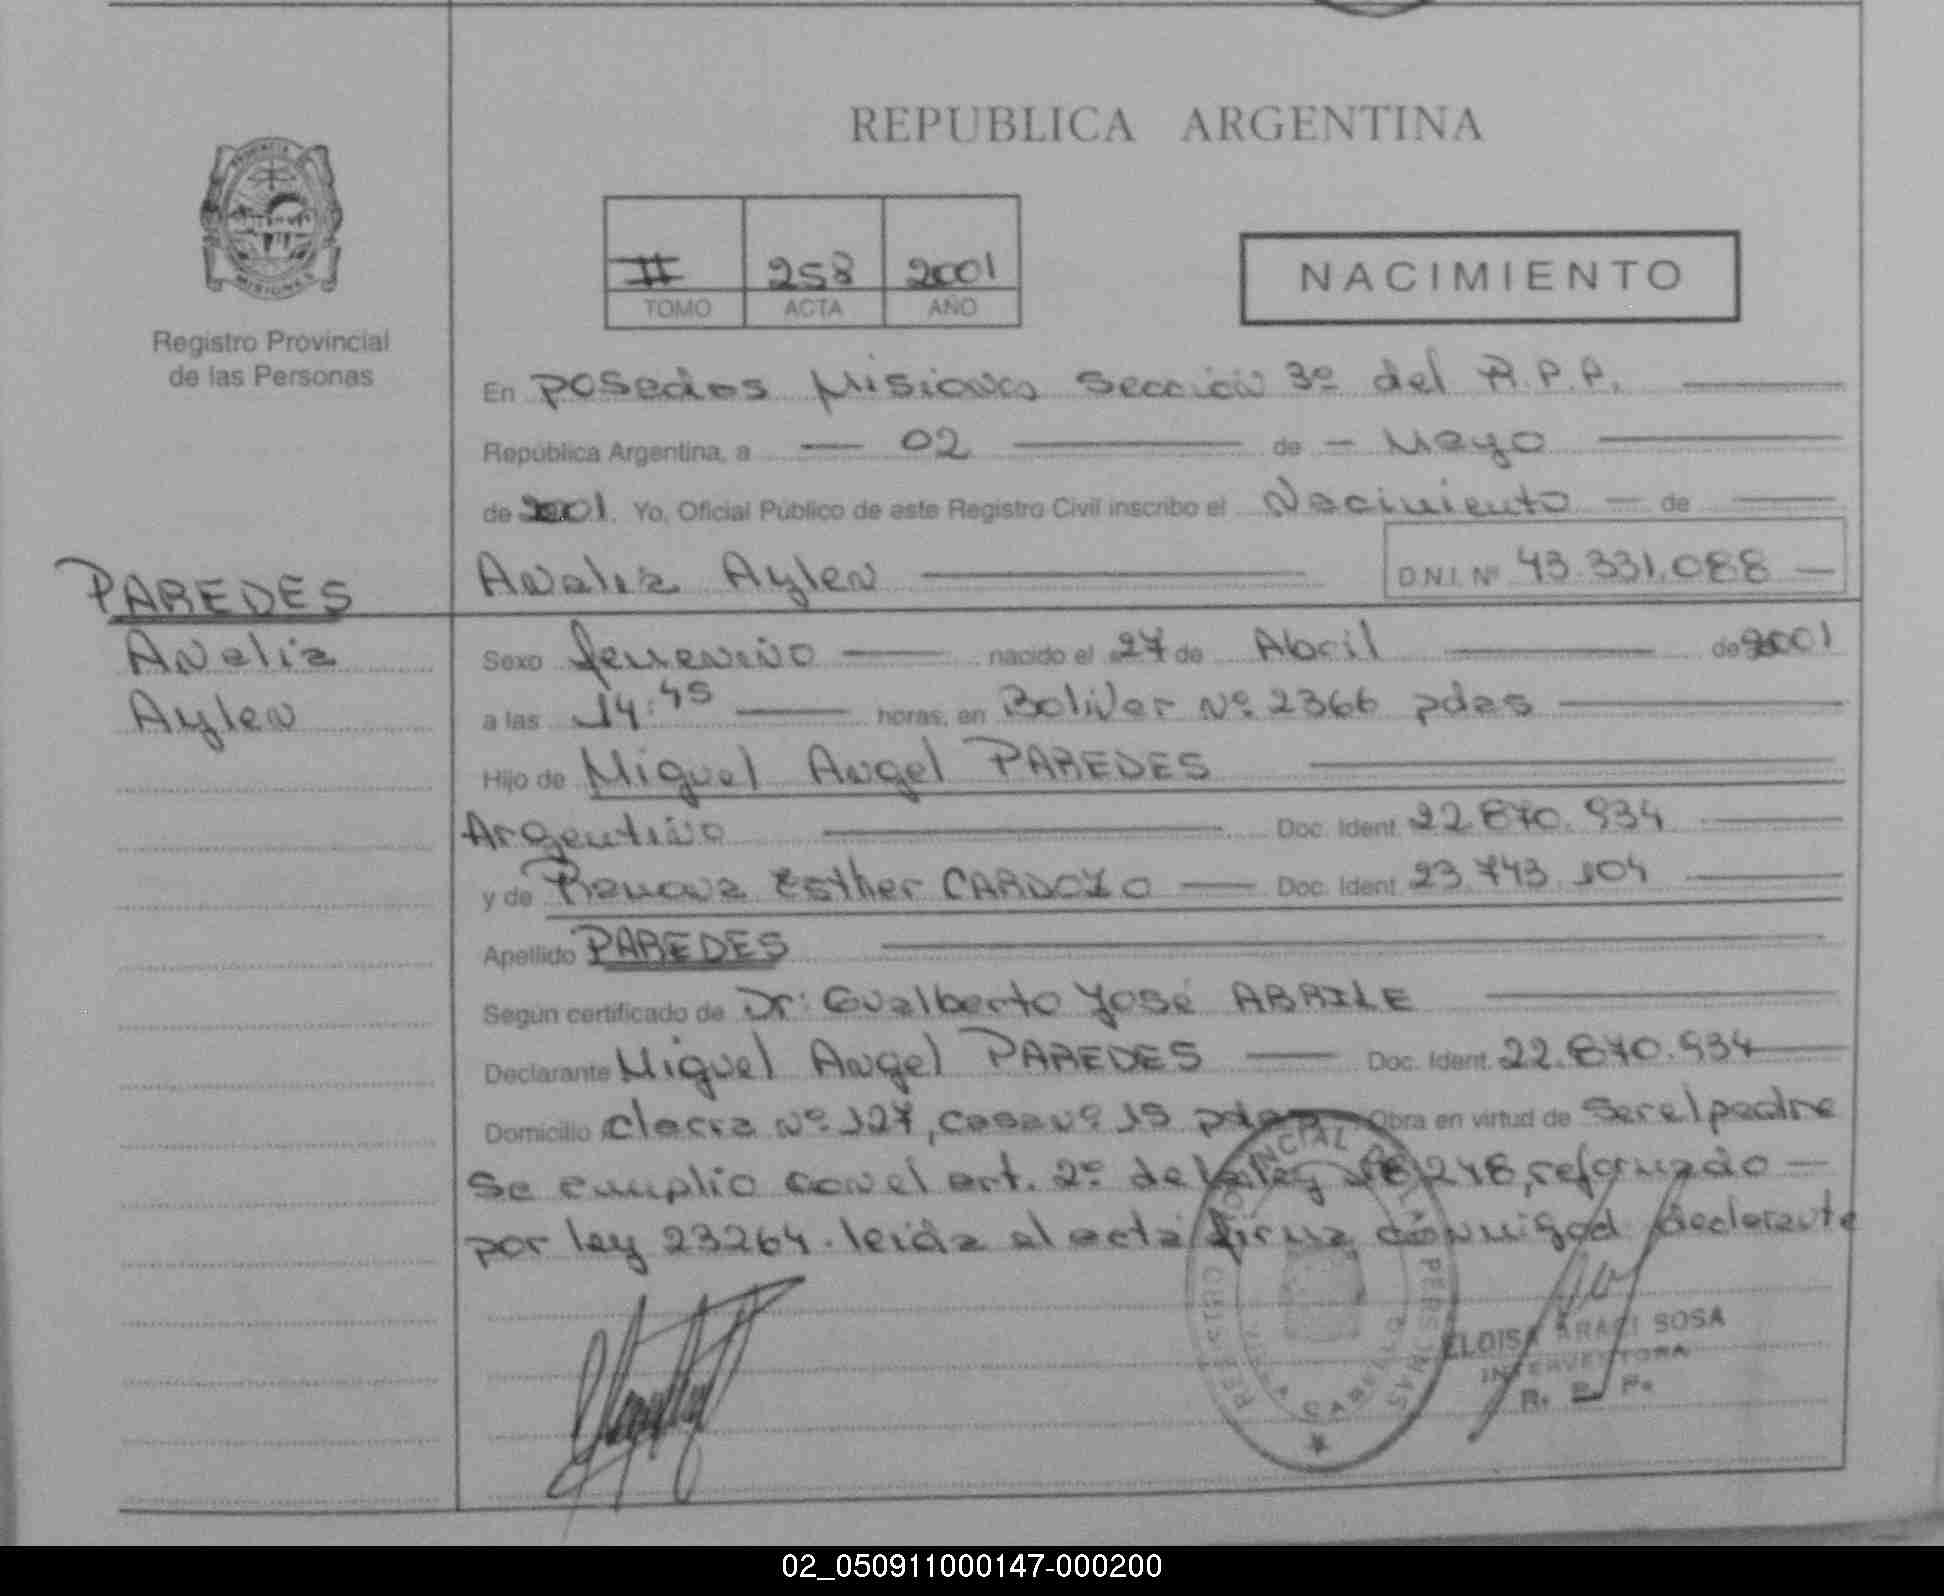 REPUBLICA ARGENTINA
PROVINCIA
MISIONES
Registro Provincial
de las Personas
II 258 2001
TOMO ACTA AÑO
NACIMIENTO
En Posadas Misiones Sección 3º del R.P.P.
República Argentina, a 02 de Mayo
de 2001. Yo, Oficial Público de este Registro Civil inscribo el Nacimiento de
Analia Aylen D.N.I. Nº 43.331.088
PAREDES
Analia
Aylen
Sexo femenino nacido el 27 de Abril de 2001
a las 14:45 horas, en Bolivar Nº 2366 pdas
Hijo de Miguel Angel PAREDES
Argentino Doc. Ident. 22.870.934
y de Ramona Esther CARDOZO Doc. Ident. 23.743.104
Apellido PAREDES
Según certificado de Dr: Gualberto José ABRILE
Declarante Miguel Angel PAREDES Doc. Ident. 22.870.934
Domicilio chacra Nº 127, casa nº 15 pdas Obra en virtud de ser el padre
Se cumplio con el art. 2º de la ley 18248, reformado
por ley 23264. leida el acta firma conmigo el declarante
REGISTRO PROVINCIAL DE LAS PERSONAS
ELOISA ARACI SOSA
INTERVENTORA
R. P. P.
02_050911000147-000200